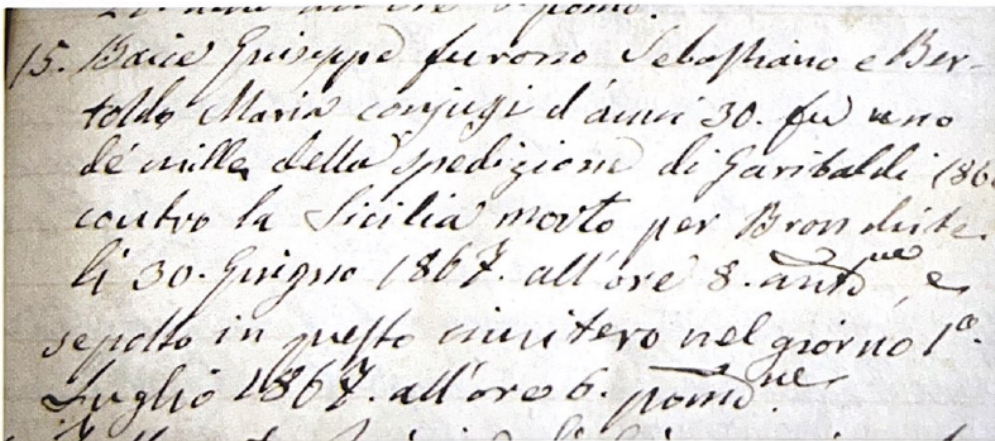 pomd.
15. Baice Giuseppe furono Sebastiano e Ber-
toldo Maria conjugi d'anni 30. fu uno
de mille della spedizione di Garibaldi 186
contro la Sicilia morto per Bronchite
li 30. Giugno 1867. all'ore 8. antd.ne e
sepolto in questo cimitero nel giorno 1º.
Luglio 1867. all'ore 6. pomd.ne